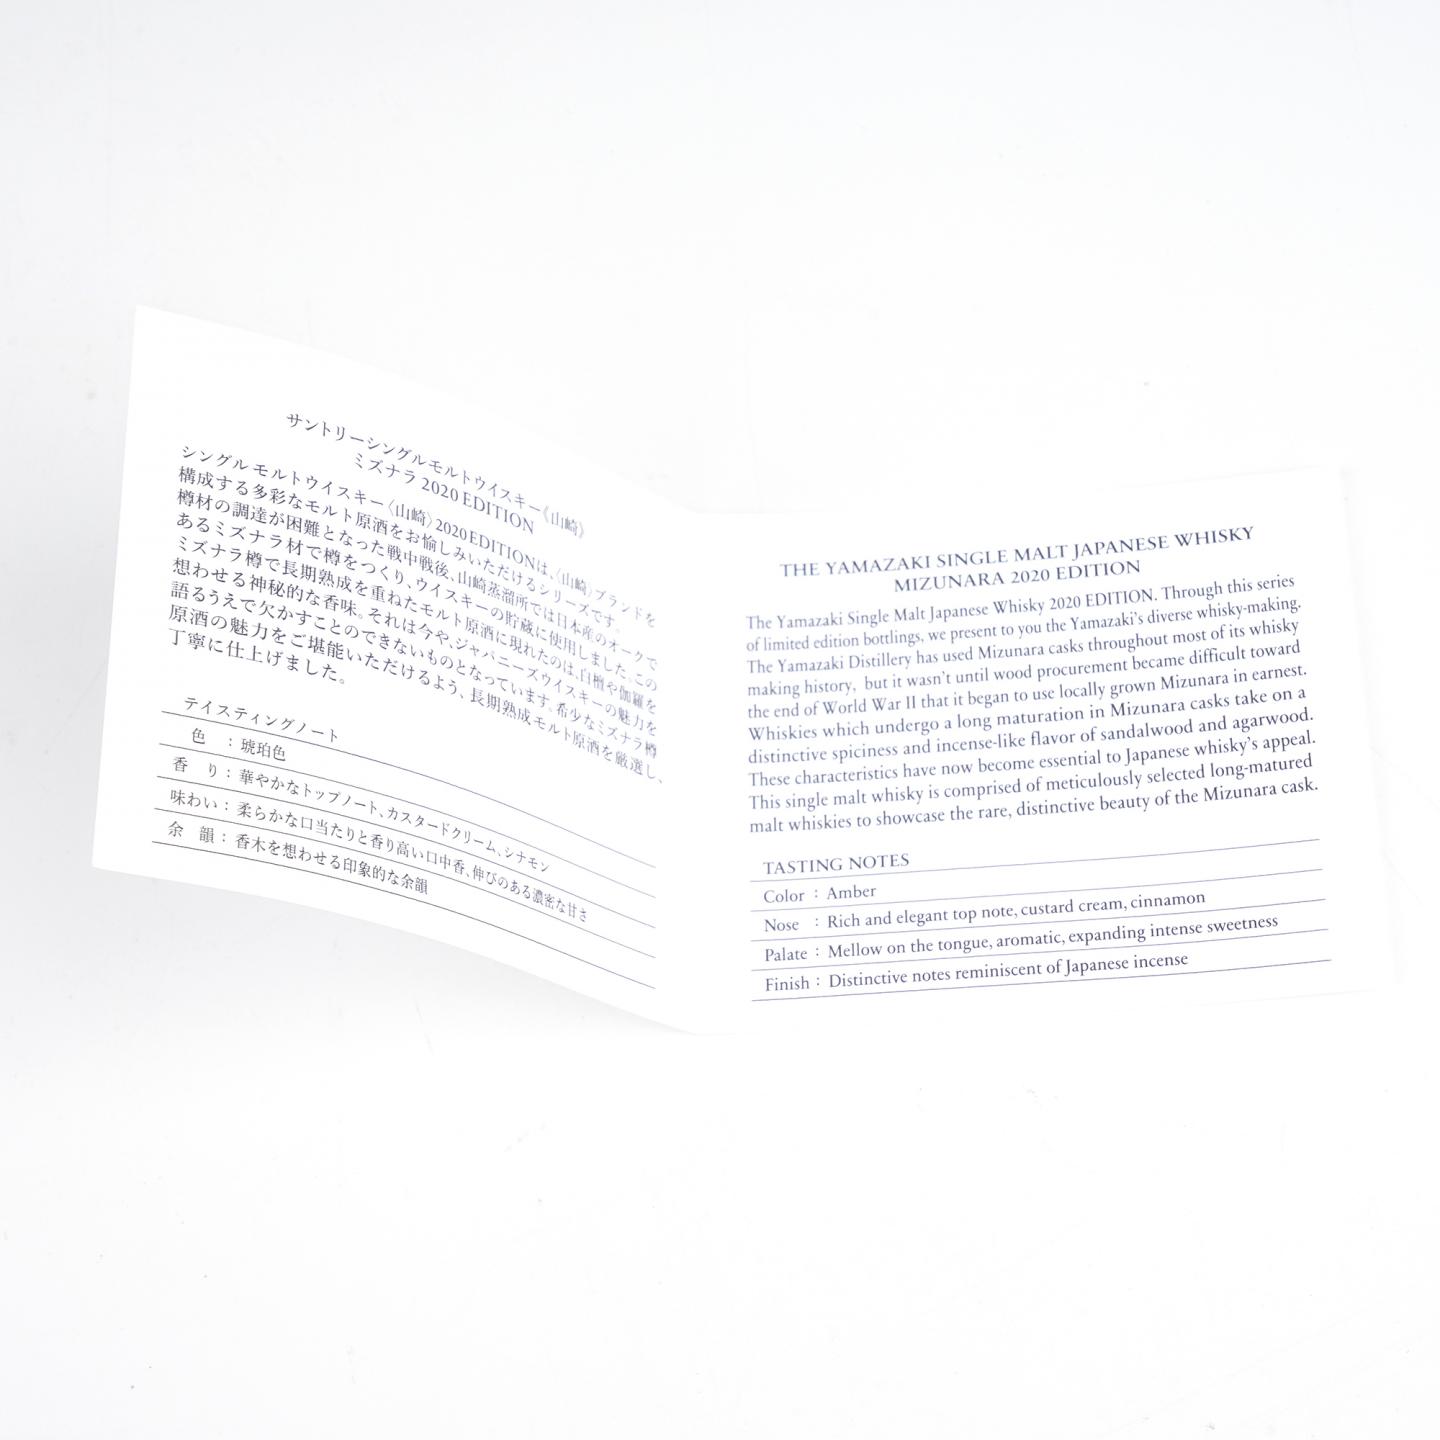 サントリーシングルモルトウイスキー《山崎》
ミズナラ 2020 EDITION
シングルモルトウイスキー〈山崎〉2020 EDITIONは、〈山崎〉ブランドを
構成する多彩なモルト原酒をお愉しみいただけるシリーズです。
樽材の調達が困難となった戦中戦後、山崎蒸溜所では日本産のオークで
あるミズナラ材で樽をつくり、ウイスキーの貯蔵に使用しました。この
ミズナラ樽で長期熟成を重ねたモルト原酒に現れたのは、白檀や伽羅を
想わせる神秘的な香味。それは今や、ジャパニーズウイスキーの魅力を
語るうえで欠かすことのできないものとなっています。希少なミズナラ樽
原酒の魅力をご堪能いただけるよう、長期熟成モルト原酒を厳選し、
丁寧に仕上げました。
テイスティングノート
色 : 琥珀色
香 り : 華やかなトップノート、カスタードクリーム、シナモン
味わい : 柔らかな口当たりと香り高い口中香、伸びのある濃密な甘さ
余 韻 : 香木を想わせる印象的な余韻
THE YAMAZAKI SINGLE MALT JAPANESE WHISKY
MIZUNARA 2020 EDITION
The Yamazaki Single Malt Japanese Whisky 2020 EDITION. Through this series
of limited edition bottlings, we present to you the Yamazaki's diverse whisky-making.
The Yamazaki Distillery has used Mizunara casks throughout most of its whisky
making history, but it wasn't until wood procurement became difficult toward
the end of World War II that it began to use locally grown Mizunara in earnest.
Whiskies which undergo a long maturation in Mizunara casks take on a
distinctive spiciness and incense-like flavor of sandalwood and agarwood.
These characteristics have now become essential to Japanese whisky's appeal.
This single malt whisky is comprised of meticulously selected long-matured
malt whiskies to showcase the rare, distinctive beauty of the Mizunara cask.
TASTING NOTES
Color : Amber
Nose : Rich and elegant top note, custard cream, cinnamon
Palate : Mellow on the tongue, aromatic, expanding intense sweetness
Finish : Distinctive notes reminiscent of Japanese incense